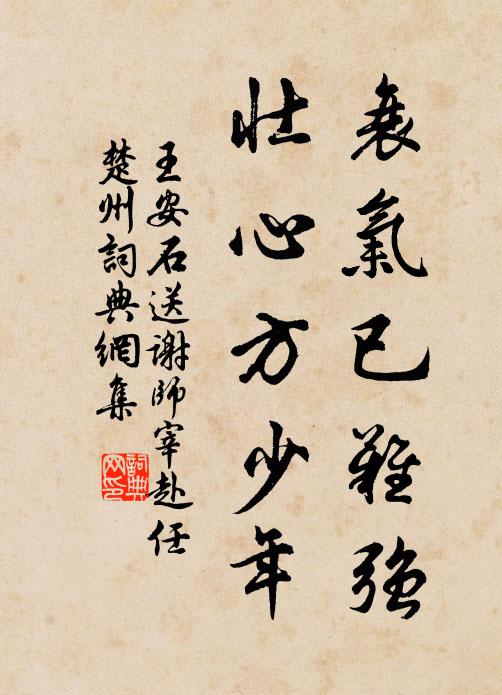 衰氣已難強
壯心方少年
王安石送謝師宰赴任
楚州詞典網集
詞典網印